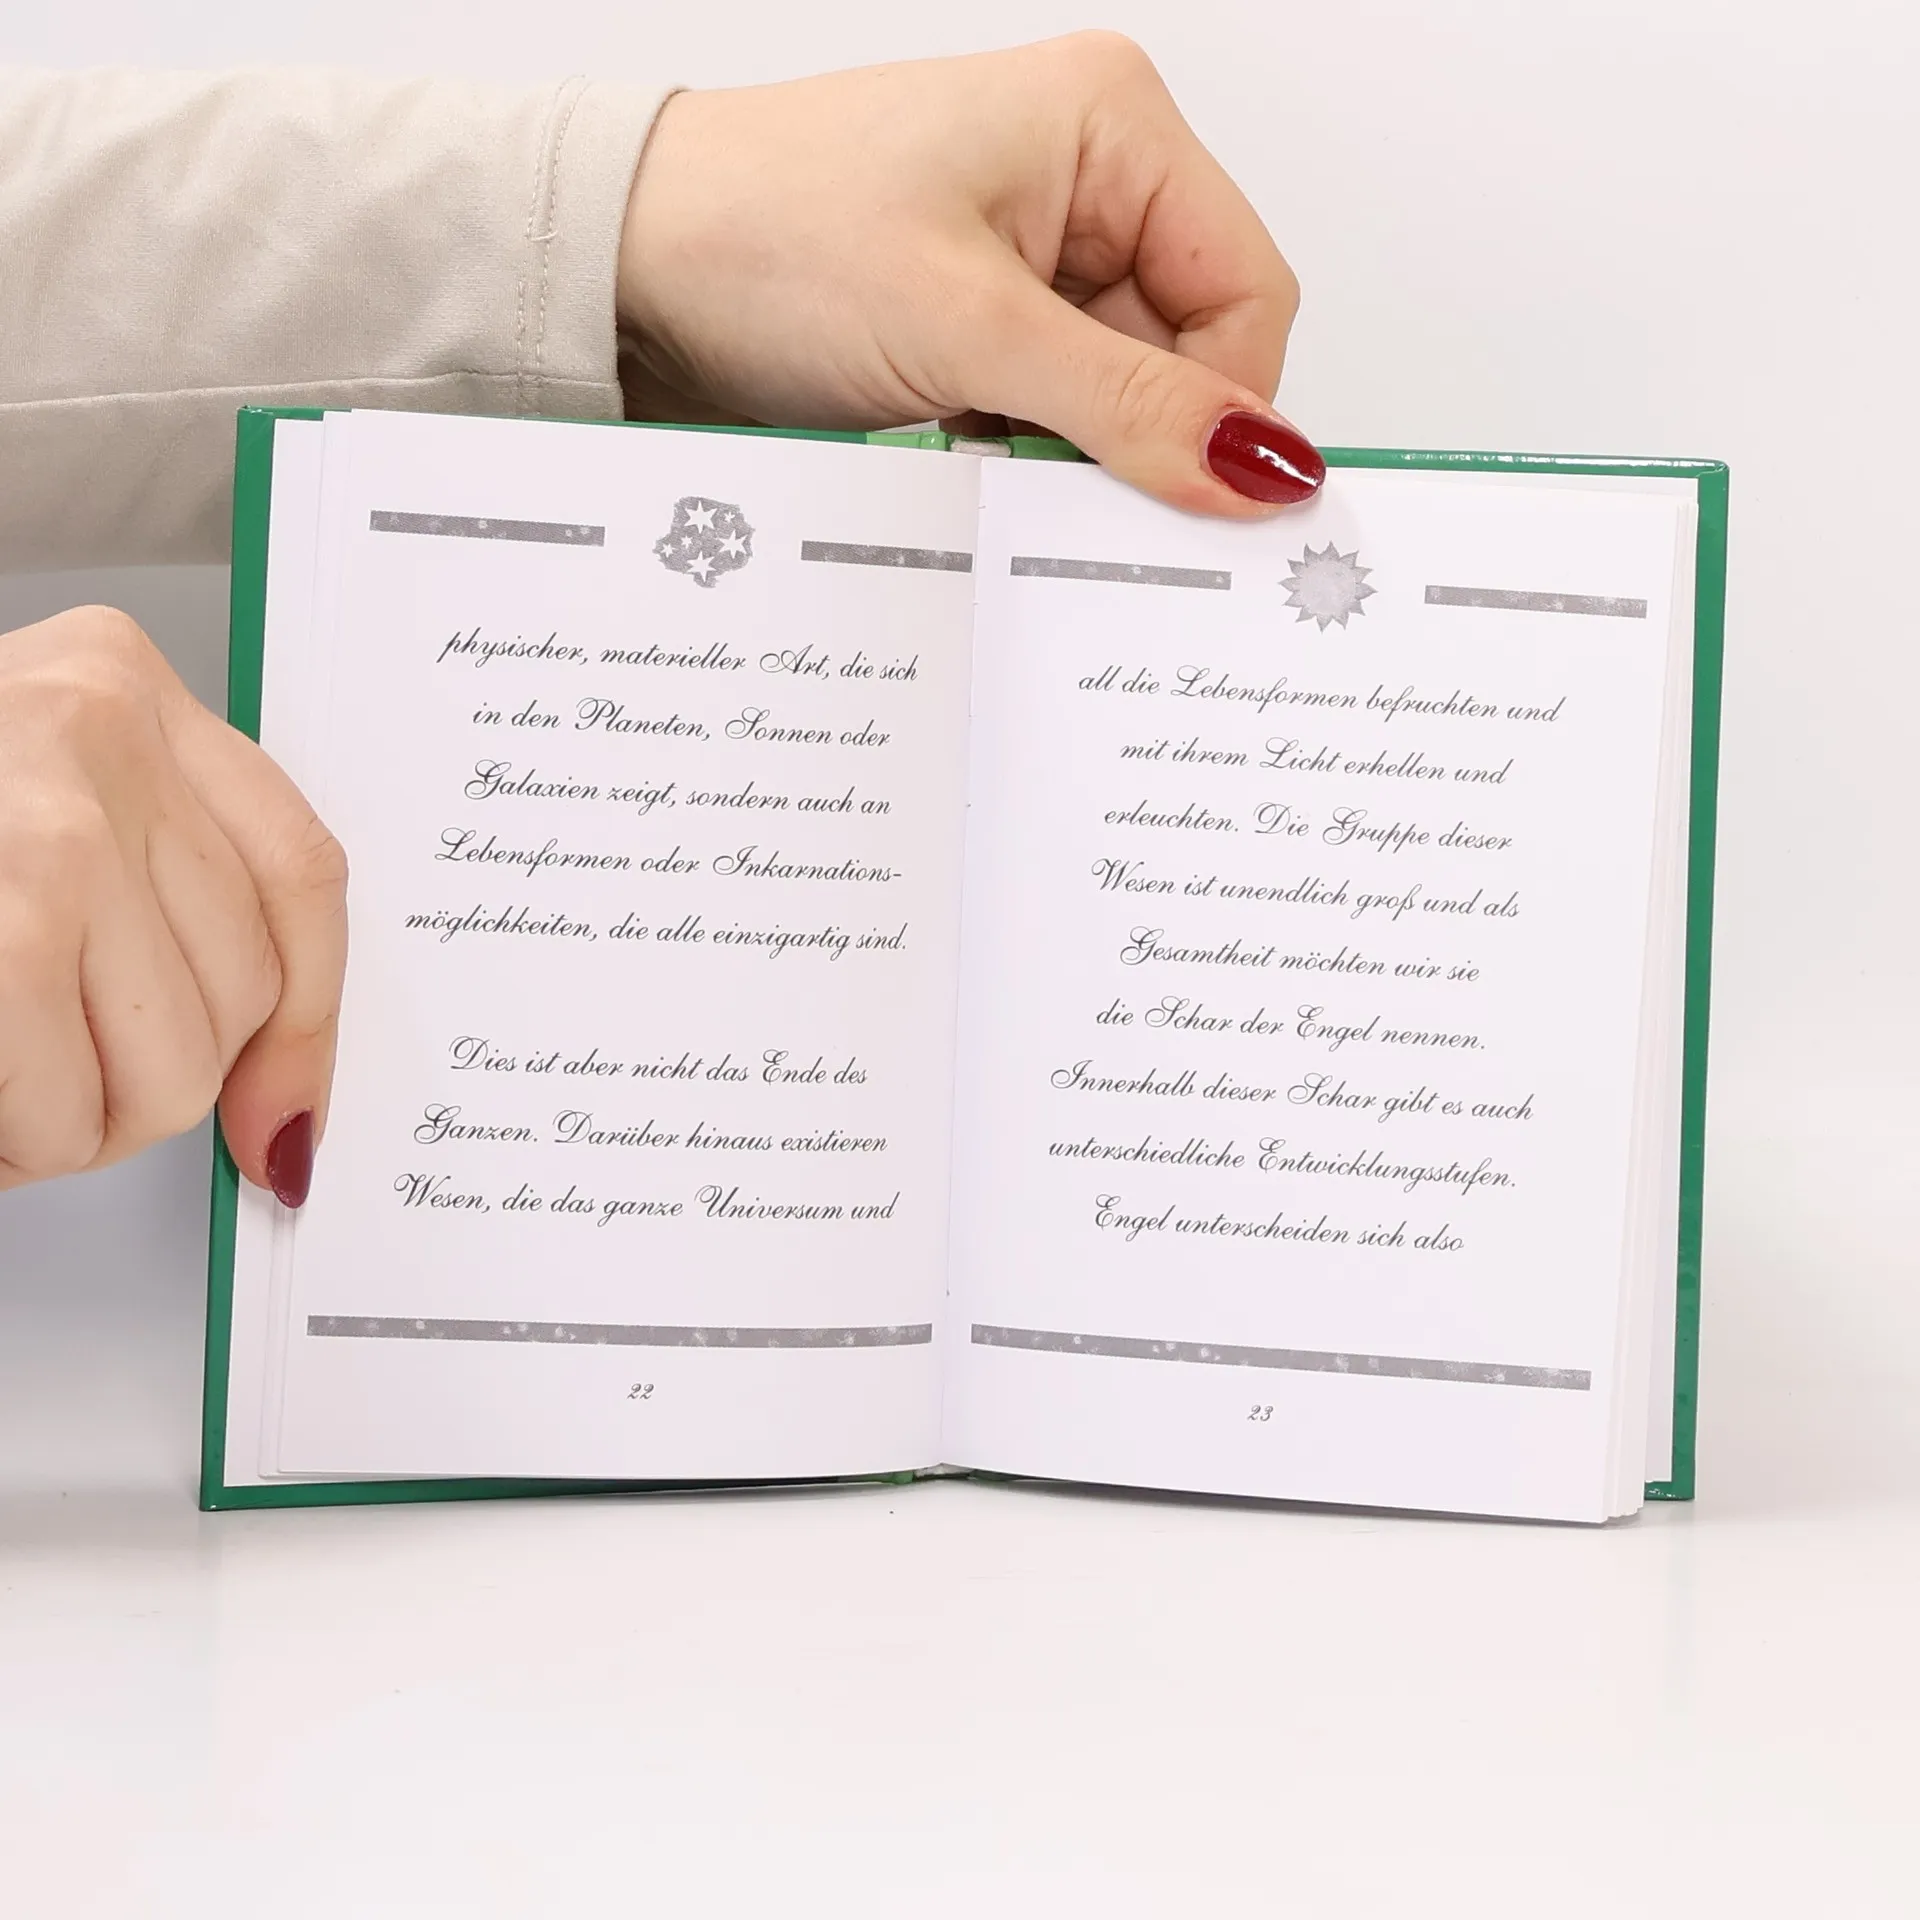 physischer, materieller Art, die sich
in den Planeten, Sonnen oder
Galaxien zeigt, sondern auch an
Lebensformen oder Inkarnations-
möglichkeiten, die alle einzigartig sind.
Dies ist aber nicht das Ende des
Ganzen. Darüber hinaus existieren
Wesen, die das ganze Universum und
22
all die Lebensformen befruchten und
mit ihrem Licht erhellen und
erleuchten. Die Gruppe dieser
Wesen ist unendlich groß und als
Gesamtheit möchten wir sie
die Schar der Engel nennen.
Innerhalb dieser Schar gibt es auch
unterschiedliche Entwicklungsstufen.
Engel unterscheiden sich also
23